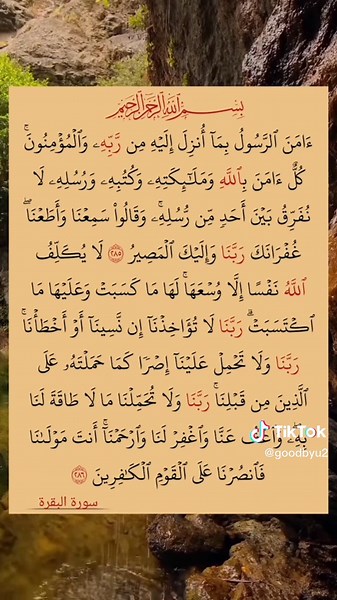 بِسْمِ ٱللَّهِ ٱلرَّحْمَٰنِ ٱلرَّحِيمِ
ءَامَنَ ٱلرَّسُولُ بِمَآ أُنزِلَ إِلَيْهِ مِن رَّبِّهِۦ وَٱلْمُؤْمِنُونَۚ
كُلٌّ ءَامَنَ بِٱللَّهِ وَمَلَٰٓئِكَتِهِۦ وَكُتُبِهِۦ وَرُسُلِهِۦ لَا
نُفَرِّقُ بَيْنَ أَحَدٍ مِّن رُّسُلِهِۦۚ وَقَالُوا۟ سَمِعْنَا وَأَطَعْنَاۖ
غُفْرَانَكَ رَبَّنَا وَإِلَيْكَ ٱلْمَصِيرُ ٢٨٥ لَا يُكَلِّفُ
ٱللَّهُ نَفْسًا إِلَّا وُسْعَهَاۚ لَهَا مَا كَسَبَتْ وَعَلَيْهَا مَا
ٱكْتَسَبَتْۗ رَبَّنَا لَا تُؤَاخِذْنَآ إِن نَّسِينَآ أَوْ أَخْطَأْنَاۚ
رَبَّنَا وَلَا تَحْمِلْ عَلَيْنَآ إِصْرًا كَمَا حَمَلْتَهُۥ عَلَى
ٱلَّذِينَ مِن قَبْلِنَاۚ رَبَّنَا وَلَا تُحَمِّلْنَا مَا لَا طَاقَةَ لَنَا
بِهِۦۖ وَٱعْفُ عَنَّا وَٱغْفِرْ لَنَا وَٱرْحَمْنَآۚ أَنتَ مَوْلَىٰنَا
فَٱنصُرْنَا عَلَى ٱلْقَوْمِ ٱلْكَٰفِرِينَ ٢٨٦
سورة البقرة
TikTok
@goodbyu2